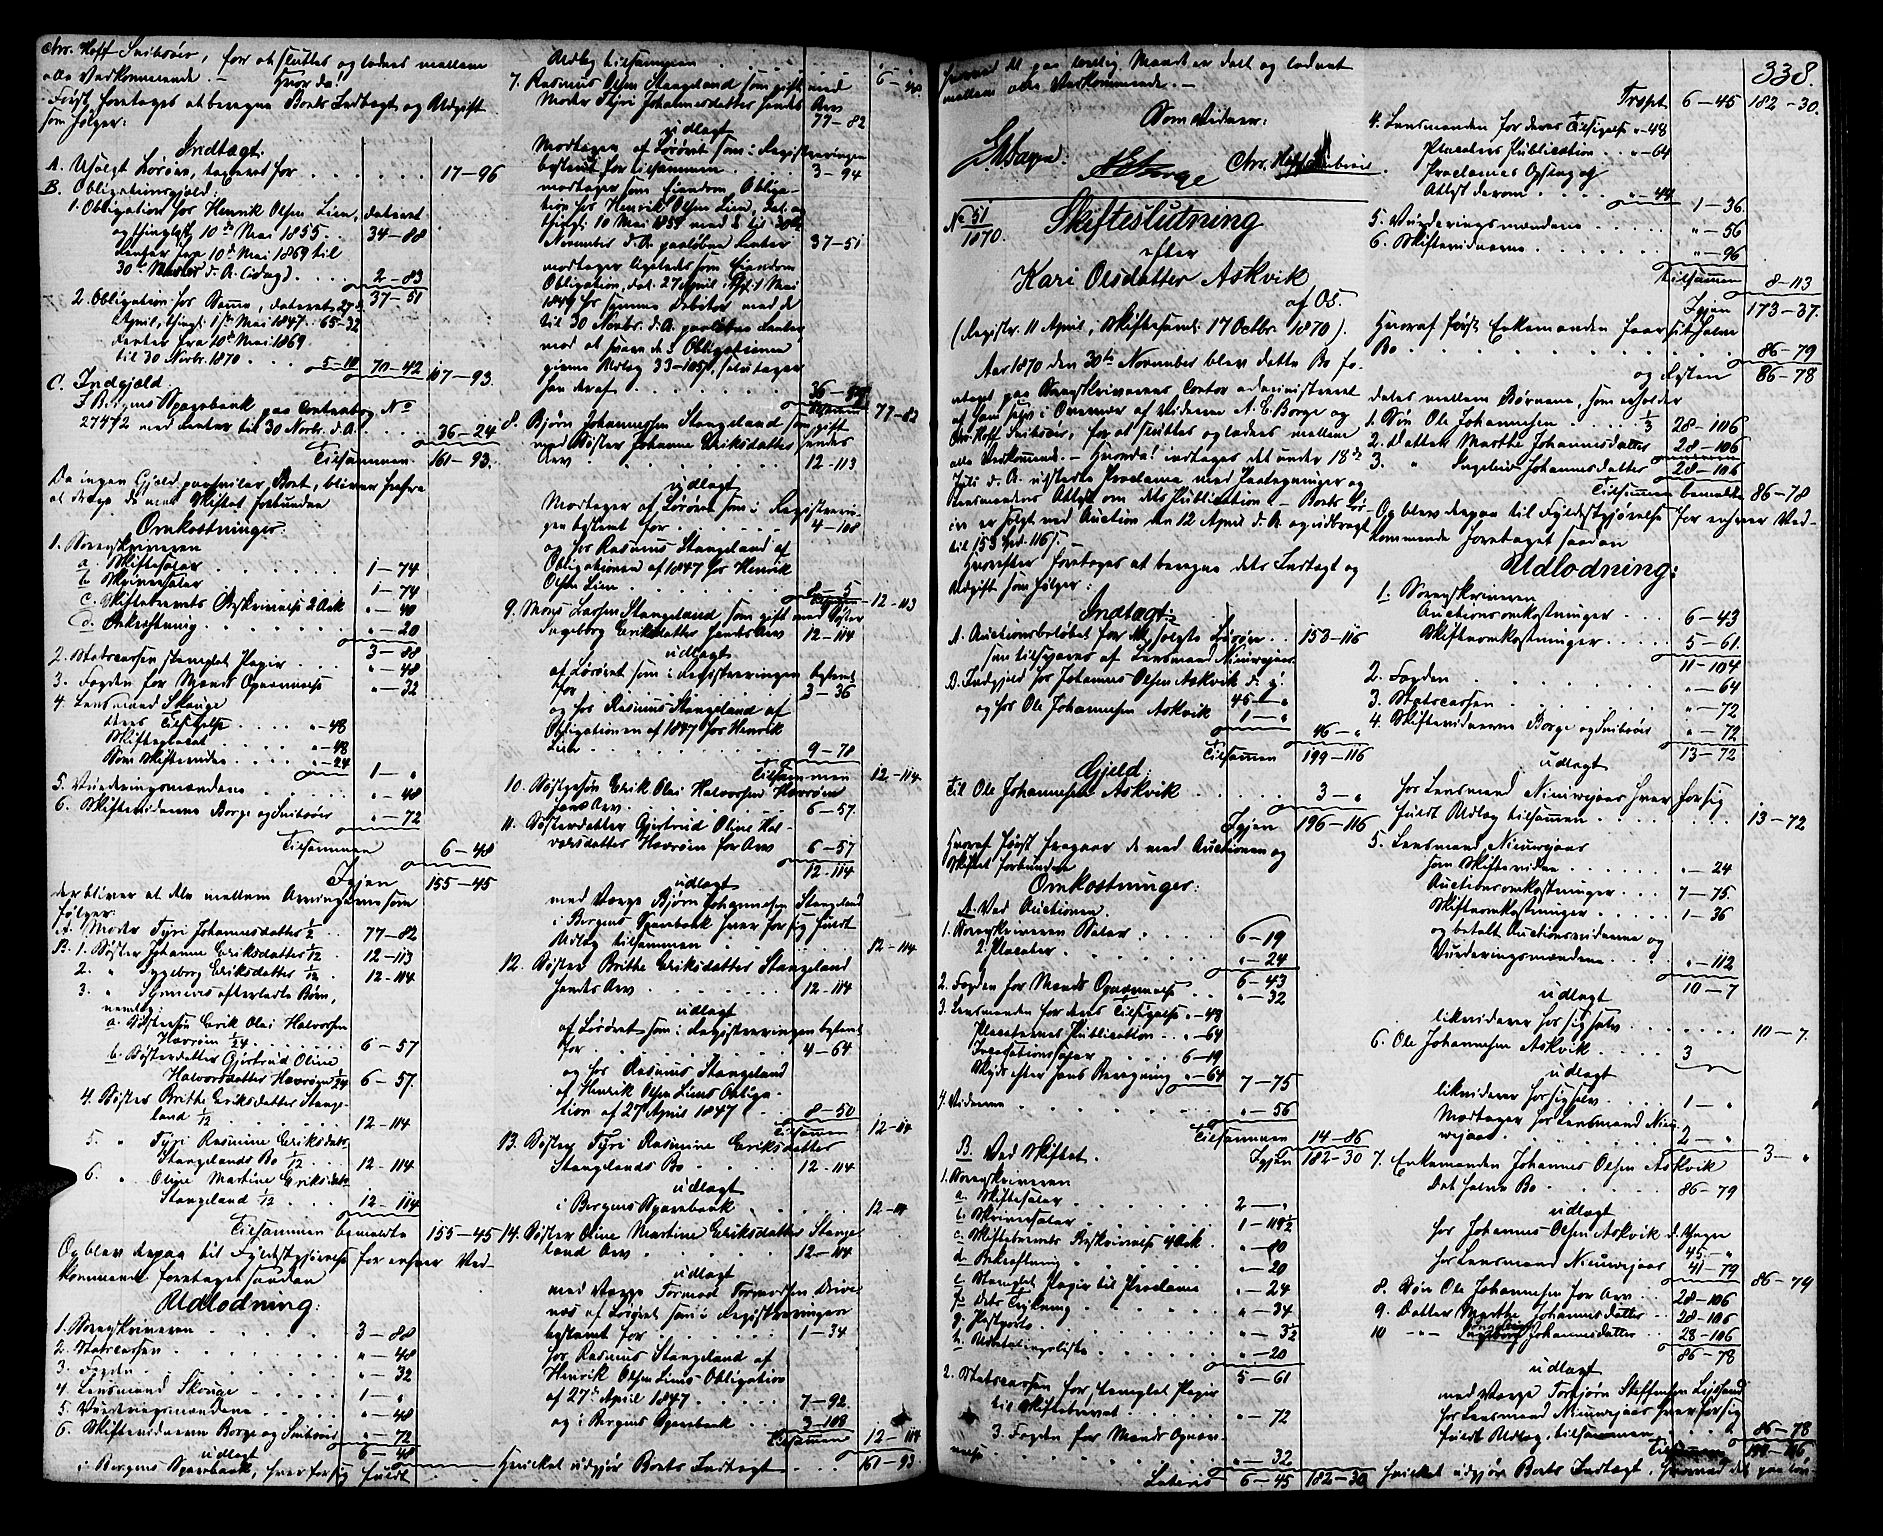 Chr. Hoff Snibsøer, for at sluttes og lodnes mellem
alle Vedkommende. — Hvorda!
Først foretages at beregne Boets Indtægt og Udgift
som følger:
Indtægt:
A. Usolgt Løsøre, taxeret for 17-96
B. Obligationsgjæld.
1. Obligation fra Henrik Olsen Lien, dateret
og thinglyst 10de Mai 1855 34-88
Renter fra 10de Mai 1869 til
30te d. A. (idag) 2-83
37-51
2. Obligation fra Samme, dateret 27de
April, thingl. 1ste Mai 1847 65-32
Renter fra 10de Mai 1869
til 30 Novbr. 1870 5-10 70-42 107-93.
C. Indgjæld.
I Bergens Sparebank paa Contrabog No
27572 med Renter til 30 Novbr. d. A. 36-24
Tilsammen 161-93.
Da ingen Gjæld paahviler Boet, bliver herfra
at drage de med Skiftet forbundne
Omkostninger:
1. Sorenskriveren
a. Skiftesalær 1-74
b. Skriversalær 1-74
c. Skiftebrevets Beskrivelse 2 Ark "-40
d. Bekræftning "-20
3-88
2. Statscassen stemplet Papir "-48
3. Fogden for Mænds Opnævnelse "-32
4. Lensmand Skouge
dens Tilsigelse "-48
Skifteplacat "-48
Som Skiftevidne "-24
1-"
5. Vurderingsmændene "-48
6. Skiftevidnerne Borge og Snibsøer "-72
Tilsammen 6-48
Igjen 155-45
der bliver at dele mellem Arvingerne som
følger:
A. Moder Tyri Johannesdatter 1/2 77-82
B. 1. Søster Johanne Eriksdatter 1/12 12-113
2. " Ingeborg Eriksdatter 1/12 12-114
3. " efterladte Børn,
nemlig:
a. Søstersøn Erik Olai Halvorsen
Havrøen 1/24 6-57
b. Søsterdatter Gjertrud Oline
Halvorsdatter Havrøen 1/24 6-57.
4. Søster Brithe Eriksdatter Stange-
land 1/12 12-114
5. " Tyri Rasmine Eriksdatt.
Stangelands Bo 1/12 12-114
6. " Oline Martine Eriksdatt.
Stangeland 1/12 12-114
Tilsammen bemeldte 155-45
Og blev derpaa til Fyldestgjørelse for enhver Ved-
kommende foretaget saadan
Udlodning:
1. Sorenskriveren 3-88
2. Statscassen "-48
3. Fogden "-32
4. Lensmand Skouge 1-"
5. Vurderingsmændene "-48
6. Skiftevidnerne Borge og Snibsøer "-72
6-48
udlagt
i Bergens Sparebank, hver for sig fuldt
Udlæg tilsammen 6-48
7. Rasmus Olsen Stangeland som gift med
Moder Tyri Johannesdatter hendes Arv
77-82
udlagt
Modtagen af Løsøret som i Registreringen
bestemt for tilsammen 3-94
modtager som Eiendom Obliga-
tion fra Henrik Olsen Lien, dat. og
thingl. 10 Mai 1855 med til 30te
November d. A. paaløbne Renter 37-51
modtager ligeledes som Eiendom
Obligation, dat. 27 April, thgl. 1 Mai
1847 fra samme Debitor med de
til 30 Novbr. d. A. paaløbne Renter,
mod at svare de i Obligationen
givne Udlæg 33-105/, saa tager
han deraf
77-82
8. Bjørn Johannesen Stangeland som gift
med Søster Johanne Eriksdatter hendes
Arv 12-113
udlagt
Modtagen af Løsøret som i Registrerin-
gen bestemt for 4-108
og hos Rasmus Stangeland af
Obligationen af 1847 fra Henrik
Olsen Lien 8-5
12-113
9. Mons Larsen Stangeland som gift med Søster
Ingeborg Eriksdatter hendes Arv 12-114
udlagt
af Løsøret som i Registreringen bestemt
for 3-36
og hos Rasmus Stangeland af
Obligationen af 1847 fra Henrik
Lien 9-78
Tilsammen 12-114
10. Søstersøn Erik Olai Halvorsen Havrøen
hans Arv 6-57.
11. Søsterdatter Gjertrud Oline Hal-
vorsdatter Havrøen for Arv 6-57
12-114
udlagt
med Værge Bjørn Johannesen Stangeland
i Bergens Sparebank hver for sig fuldt
Udlæg tilsammen 12-114
12. Søster Brithe Eriksdatter Stangeland
hendes Arv 12-114
udlagt
af Løsøret som i Registreringen bestemt
for 4-64
og hos Rasmus Stangeland
af Henrik Olsen Liens Obliga-
tion af 27 April 1847 8-50
Tilsammen 12-114
13. Søster Tyri Rasmine Eriksdatter
Stangelands Bo 12-114
udlagt
i Bergens Sparebank 12-114
14. Søster Oline Martine Eriksdatter Stange-
land Arv 12-114
udlagt
med Værge Tormod Tormodsen
af Løsøret som i Registreringen
bestemt for 1-34
hos Rasmus Stangeland af
Henrik Olsen Liens Obligation
af 27de April 1847 7-92
og i Bergens Sparebank 3-108
Tilsammen 12-114
Hvilket udgjør Boets Indtægt 161-93
hvorved det paa lovlig Maade er delt og lodnet
mellem alle Vedkommende. —
Som Vidner:
A E Borge Chr. Hoff Snibsøer.
No 51/1870.
Skifteslutning
efter
Kari Olsdatter Askvik
af Os.
(Registr. 11 April, Skiftesaml. 17 Octbr. 1870).
Aar 1870 den 30te November blev dette Bo fo-
retaget paa Sorenskriverens Contor administreret
af ham selv i Overvær af Vidnerne A. E. Borge og
Chr. Hoff Snibsøer, for at sluttes og lodnes mellem
alle Vedkommende. — Hvorda! indtages det under 18de
Juli d. A. udstedte Proclama med Paategninger og
Lensmandens Attest om dets Publication — Boets Løs-
øre er solgt ved Auction den 12 April d. A. og udbragt
til 153 Spd. 116/.
Hvorefter foretages at beregne dets Indtægt og
Udgift som følger:
Indtægt:
A. Auctionsbeløbet for det solgte Løsøre 153-116
som tilsvares af Lensmand
B. Indgjæld hos Johannes Olsen Askvik d. y.
45-"
og hos Ole Johannesen Askvik 1-"
46-"
Tilsammen 199-116
Gjeld:
til Ole Johannesen Askvik 3-"
Igjen 196-116
Hvoraf først fragaar de med Auctionen og
Skiftet forbundne
Omkostninger:
A. Ved Auctionen.
1. Sorenskriveren Salær 6-19
2 Placater "-24
6-43
2. Fogden for Mænds Opnævnelse "-32
3. Lensmanden for deres Tilsigelse "-48
Placaternes Publication "-64
Incassationssalær 6-19
Skyds efter hans Beregning "-64
7-75
4. Vidnerne "-56
Tilsammen 14-86
Igjen 182-30
B. Ved Skiftet.
1. Sorenskriveren
a. Skiftesalær 2-"
b. Skriversalær 1-119½
c. Skiftebrevets Beskrivelse 4 Ark "-80
d. Bekræftning "-20
e. Stemplet Papir til Proclama "-24
f. Dets Trykning "-34
g. Postporto "-3½
h. Udbetalingsliste "-20
5-61
2. Statscassen for stemplet Papir
til Skiftebrevet "-72
3. Fogden for Mænds Opnæv-
nelse "-32
Lateris 6-45 182-30
338.
Trpst. 6-45 182-30.
4. Lensmanden for deres Tilsigelse "-48
Placatens Publication "-64
Proclamas Opslag og
Attest derom "-44
1-36.
5. Vurderingsmændene "-56
6. Skiftevidnerne "-96
Tilsammen 8-113
Igjen 173-37.
Hvoraf først Enkemanden faar sit halve
Bo 86-79
og Resten 86-78
deles mellem Børnene, som erholder
1. Søn Ole Johannesen 1/3 28-106
2. Datter Marthe Johannesdatter 28-106
3. " Johannesdatter 28-106
Tilsammen bemeldte 86-78
Og blev derpaa til Fyldestgjørelse for enhver Ved-
kommende foretaget saadan
Udlodning:
1. Sorenskriveren
Auctionsomkostninger 6-43
Skifteomkostninger 5-61.
11-104
2. Fogden "-64
3. Statscassen "-72
4. Skiftevidnerne Borge og Snibsøer "-72
13-72
udlagt
hos Lensmand hver for sig
fuldt Udlæg tilsammen 13-72
5. Lensmand
som Skiftevidne "-24
Auctionsomkostninger 7-75.
Skifteomkostninger 1-36
og betalt Auctionsvidnerne og
Vurderingsmændene "-112
10-7
udlagt
likviderer hos sig selv 10-7.
6. Ole Johannesen Askvik 3
udlagt
likviderer hos sig selv 1-"
Modtager hos Lensmand
2-"
3-"
7. Enkemanden Johannes Olsen Askvik
det halve Bo 86-79
udlagt
hos Johannes Olsen Askvik d. Yngre
45-"
hos Lensmand 41-79
86-79
8. Søn Ole Johannesen for Arv 28-106
9. Datter Marthe Johannesdatter 28-106
10 -"- Johannesdatter 28-106
86-78
udlagt
med Værge Torbjørn Steffensen
hos Lensmand hver for sig
fuldt Udlæg, tilsammen 86-78
Tilsammen 199-116
hvilket udgjør Boets Indtægt, hvorved det paa lov-